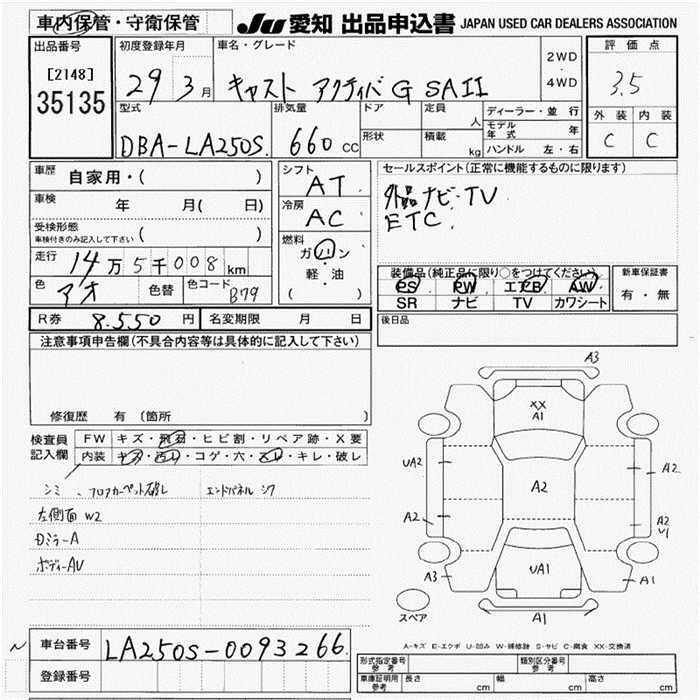 車内保管・守衛保管 JU 愛知 出品申込書 JAPAN USED CAR DEALERS ASSOCIATION
出品番号 初度登録年月 車名・グレード 評価点
[2148] 29 3月 キャスト アクティバG SAII 2WD・4WD 3.5
35135
型式 排気量 ドア 定員 人 ディーラー・並行 外装 内装
DBA-LA250S. 660cc 形状 積載 kg モデル年式 年 C C
ハンドル 左・右
車歴 自家用・( ) シフト AT セールスポイント(正常に機能するものに限ります)
車検 年 月( 日) 冷房 AC 外品ナビ・TV
受検形態 ( ) ETC.
車検付きのみ記入して下さい
走行 14万5千008km 燃料 ガソリン・軽・油 ( )
色 アオ 色替 色コード B79
装備品(純正品に限り○をつけてください) 新車保証書
PS PW エアB AW 有・無
SR ナビ TV カワシート
R券 8.550円 名変期限 月 日 後日品
注意事項申告欄(不具合内容等は具体的に記入して下さい)
修復歴 有(箇所 )
検査員記入欄 FW キズ・飛石・ヒビ割・リペア跡・X要
内装 キズ・汚レ・コゲ・穴・スレ・キレ・破レ
シミ 、フロアカーペット破レ エンドパネルシワ
左側面 W2
ボディーAU
A3
XX
A1
UA2 A2
A2
A2 A2
U1
UA1
A3 A1
スペア A1
A-キズ E-エクボ U-凹み W-補修跡 S-サビ C-腐食 XX-交換済
車台番号 LA250S-0093266
登録番号
形式指定番号 参考 類別区分番号 参考
車庫証明用 参考 長さ cm 幅 cm 高さ cm